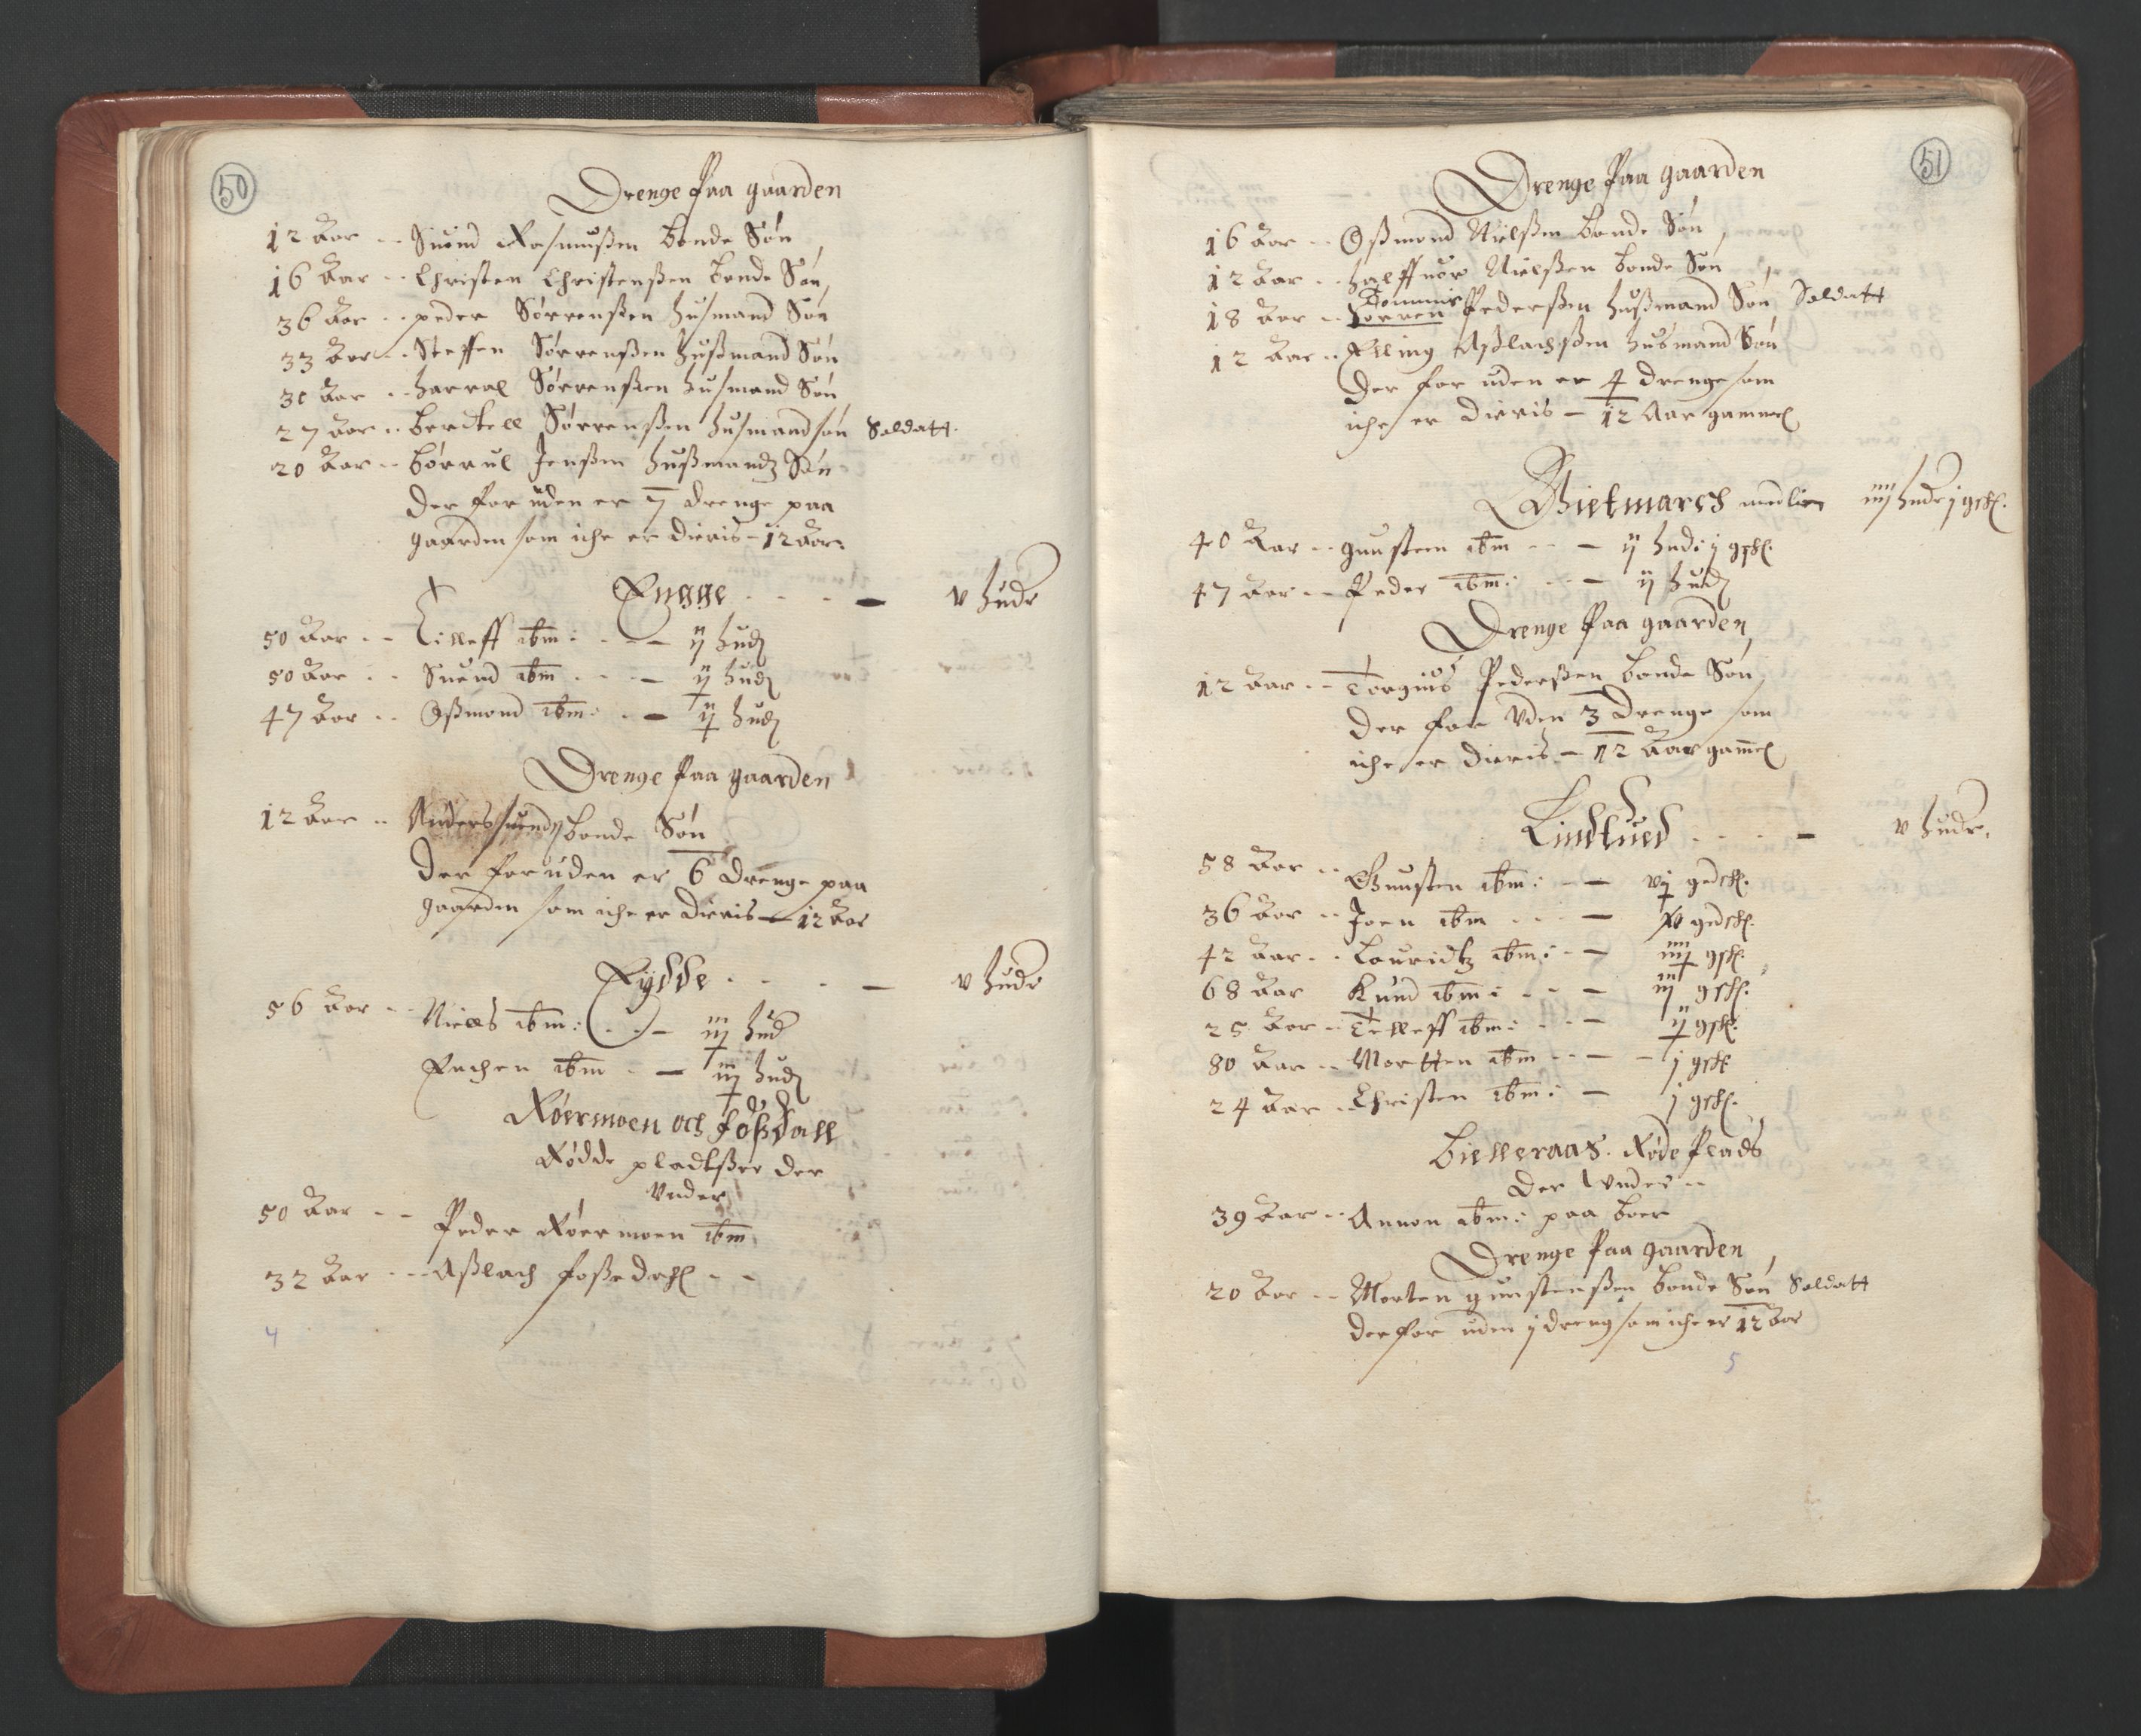 50
Drenge Paa gaarden
12 Aar -- Suend Rasmußen bonde Søn
16 Aar -- Christen Christenßen bonde Søn
36 Aar -- peder Sørrenßen husmand Søn
33 Aar -- Steffen Sørrenßen hußmand Søn
30 Aar -- harral Sørrenßen husmand Søn
27 Aar -- bertell Sørrenßen husmand søn Soldatt.
20 Aar -- børrul Jenßen hußmandz Søn
der for uden er 7 drenge paa
gaarden som iche er dieris - 12 Aar:
Engge - - - - v hudr
50 Aar -- Tilleff ibm: - - ij hud
50 Aar -- Suend ibm - - ij hud
47 Aar -- Oßmond ibm: - - ij hud
Drenge Paa gaarden
12 Aar -- Anders suend bonde Søn
der for uden er 6 drenge paa
gaarden som iche er dieris - 12 Aar
Eydde - - - - v hudr
56 Aar -- Niels ibm: - - iij hud
Enchen ibm - - iij hud
Røermoen och foßdall
Rødde pladtßer der
Vnder
50 Aar -- Peder Røermoen ibm
32 Aar -- Aßlach foßedahl --
4
51
Drenge Paa gaarden
16 Aar -- Oßmond Nielßen bonde Søn
12 Aar -- halffuor Nielßen bonde Søn
Tommis
18 Aar -- Sørren Pederßen hußmand Søn Soldatt
12 Aar -- Elling Aßlachßen husmand Søn
der for uden er 4 drenge som
iche er dieris - 12 Aar gammel
Gietmarch medlien iiij hudr j gsch.
40 Aar -- gunsten ibm - - ij hud: j gsch.
47 Aar -- Peder ibm: - - ij hud
Drenge Paa gaarden
12 Aar -- Torgius Pederßen bonde Søn
der for Vden 3 drenge som
iche er dieris - 12 Aar gamel
Lindtued - - - - v hudr.
58 Aar -- Gunsten ibm: - - vj gedsch.
36 Aar -- Joen ibm - - xv gedsch.
42 Aar -- Lauridtz ibm: - iiij gsch.
68 Aar Knud ibm: - - iij gsch.
25 Aar -- Telleff ibm: - - ij gsch.
80 Aar -- Mortten ibm - - j gsch
24 Aar -- Christen ibm: - j gsch.
Bielleraas. Røde Plads
der Vnder --
39 Aar -- Annon ibm: paa boer
Drenge Paa gaarden
20 Aar -- Morten gunstenßen bonde Søn Soldatt
der for uden j dreng som iche er 12 Aar
5